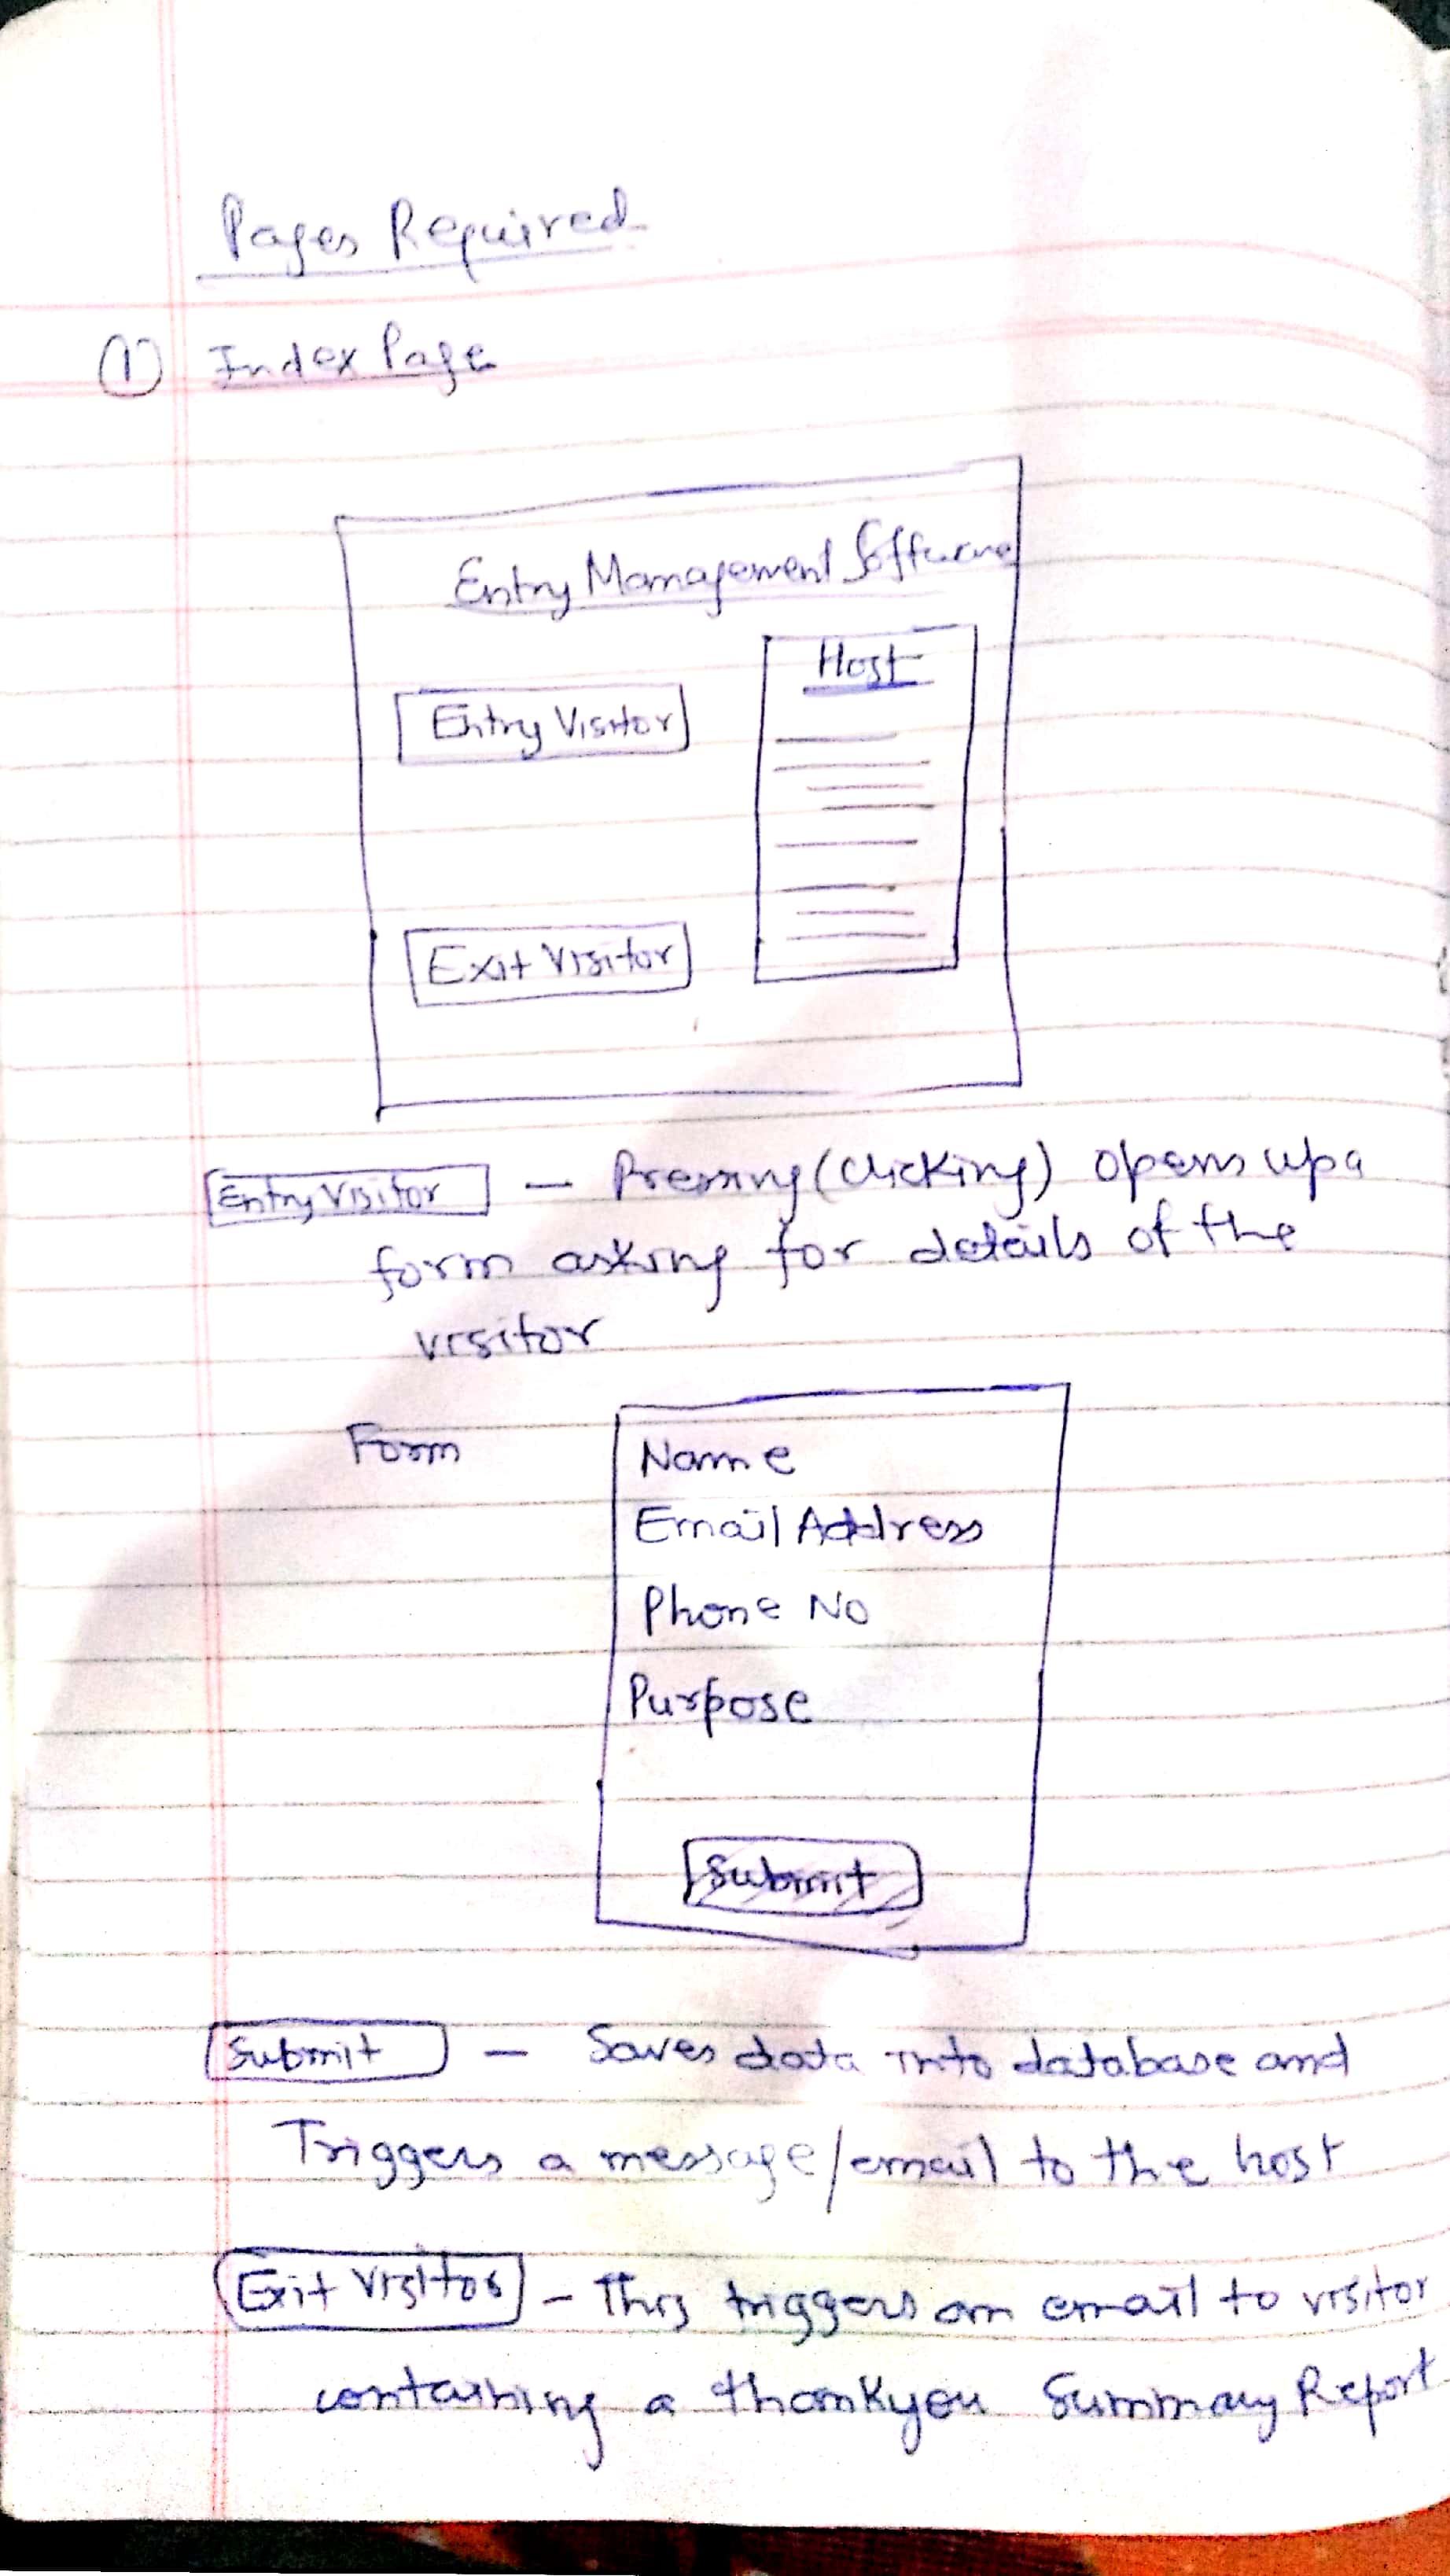 Pages Required
① Index Page
Entry Management Software
Host
Entry Visitor
Exit Visitor
Entry Visitor — Pressing (clicking) opens up a
form asking for details of the
visitor
Form
Name
Email Address
Phone No
Purpose
Submit
Submit — Saves data into database and
Triggers a message/email to the host
Exit Visitor - This triggers an email to visitor
containing a thankyou Summary Report